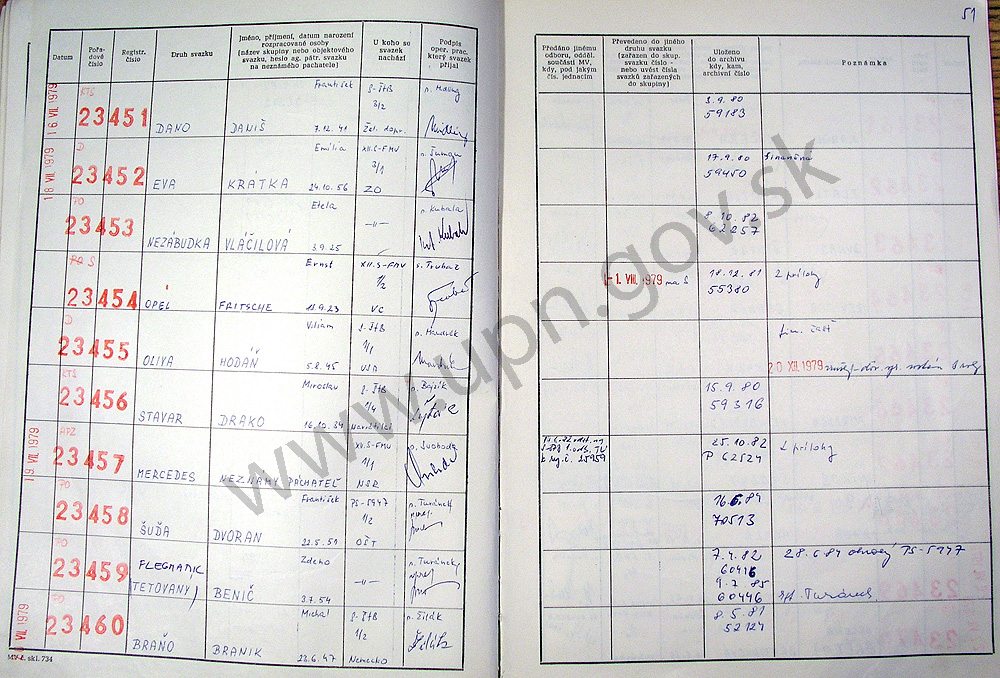 51
Datum
Pořadové číslo
Registr. číslo
Druh svazku
Jméno, příjmení, datum narození
rozpracované osoby
(název skupiny nebo objektového
svazku, heslo ag. pátr. svazku
na neznámého pachatele)
U koho se
svazek
nachází
Podpis
oper. prac.
který svazek
přijal
Předáno jinému
odboru, odděl.
součásti MV,
kdy, pod jakým
čís. jednacím
Převedeno do jiného
druhu svazku
(zařazen do skup.
svazku číslo -
nebo uvést čísla
svazků zařazených
do skupiny)
Uloženo
do archivu
kdy, kam,
archivní číslo
Poznámka
16 VII. 1979
KTS
23451
DANO
František
DANIŠ
7.12.41
S-ŠtB
3/2
Žel. dopr.
3.9.80
59183
18 VII 1979
D
23452
EVA
Emília
KRÁTKA
24.10.56
XII.S-FMV
3/1
ZO
17.9.80
59450
finančná
PO
23453
NEZÁBUDKA
Etela
VLÁČILOVÁ
3.9.25
-"-
p. Kubala
8.10.82
62257
PO S
23454
OPEL
Ernst
FRITSCHE
XII.S-FMV
1/2
VC
-1. VIII. 1979
18.12.81
55380
2 prílohy
D
23455
OLIVA
Viliam
HODÁŇ
5.8.45
S-ŠtB
1/1
USA
fin. časť
20 XII. 1979
KTS
23456
STAVAR
Miroslav
DRAKO
16.10.34
S-ŠtB
1/4
15.9.80
59316
19 VII 1979
APZ
23457
MERCEDES
NEZNÁMY PÁCHATEĽ
XII.S-FMV
1/1
NSR
p. Svoboda
25.10.82
P 62524
2 prílohy
PO
23458
ŠUĎA
František
DVORAN
22.5.51
PS-5947
1/2
OŠT
p. Turánek
16.5.84
70513
PO
23459
FLEGMATIC
TETOVANÝ
Zdeno
BENIČ
3.7.54
-"-
p. Turánek
7.4.82
60446
9.7.85
60446
28.6.84
Turánek
VII 1979
23460
BRAŇO
Michal
BRANIK
23.6.47
S-ŠtB
1/2
Nemecko
p. Žilák
8.5.81
52124
skl. 734
www.upn.gov.sk